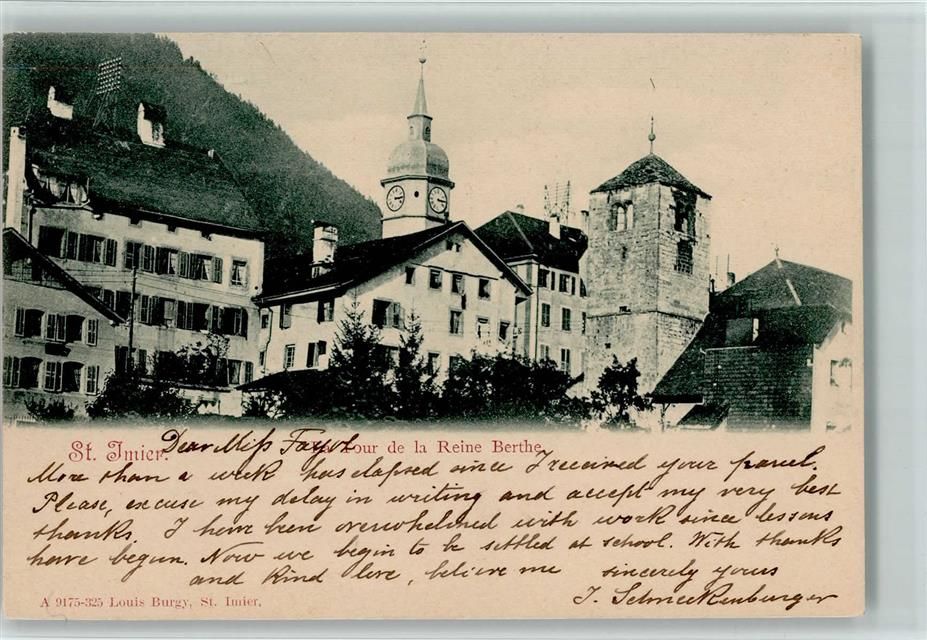 St. Imier. La Tour de la Reine Berthe.
Dear Miss Fayol
More than a week has elapsed since I received your parcel.
Please, excuse my delay in writing and accept my very best
thanks. I have been overwhelmed with work since lessons
have begun. Now we begin to be settled at school. With thanks
and kind love, believe me sincerely yours
J. Schneckenburger
A 9175-325 Louis Burgy, St. Imier.